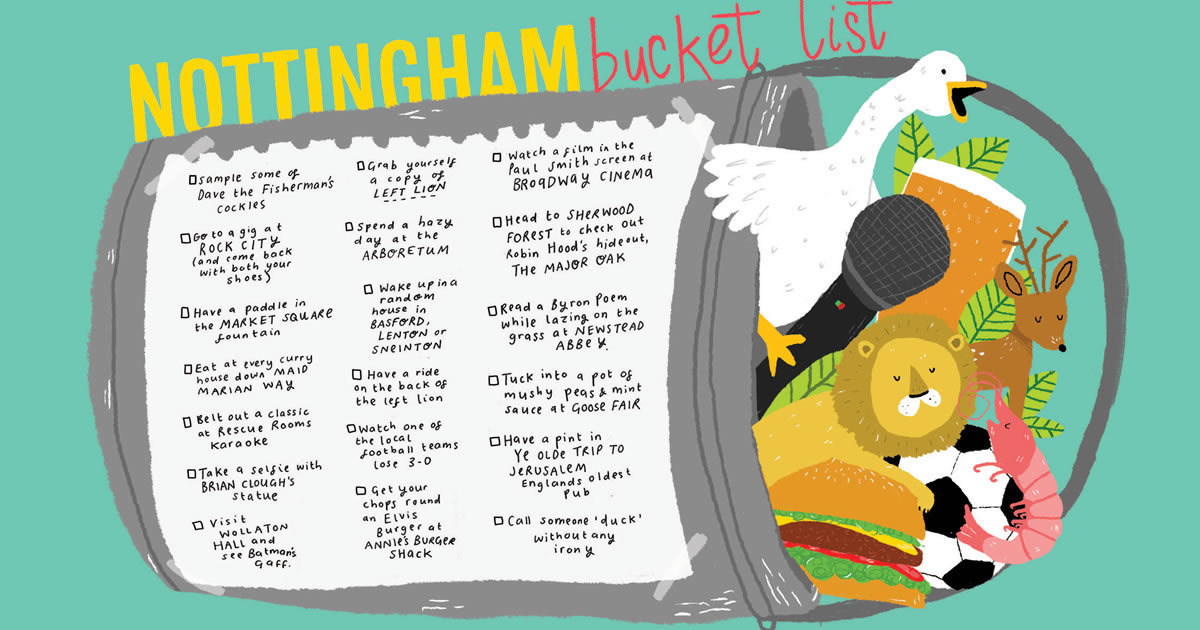 NOTTINGHAM bucket list
Sample some of
Dave the Fisherman's
cockles
Go to a gig at
ROCK CITY
(and come back
with both your
shoes)
Have a paddle in
the MARKET SQUARE
fountain
Eat at every curry
house down MAID
MARIAN WAY
Belt out a classic
at Rescue Rooms
karaoke
Take a selfie with
BRIAN CLOUGH'S
statue
Visit
WOLLATON
HALL and
see Batman's
gaff.
Grab yourself
a copy of
LEFT LION
Spend a hazy
day at the
ARBORETUM
Wake up in a
random
house in
BASFORD,
LENTON or
SNEINTON
Have a ride
on the back of
the left lion
Watch one of
the local
football teams
lose 3-0
Get your
chops round
an Elvis
Burger at
ANNIE'S BURGER
SHACK
Watch a film in the
Paul Smith screen at
BROADWAY CINEMA
Head to SHERWOOD
FOREST to check out
Robin Hood's hideout,
THE MAJOR OAK
Read a Byron Poem
while lazing on the
grass at NEWSTEAD
ABBEY.
Tuck into a pot of
mushy peas & mint
sauce at GOOSE FAIR
Have a pint in
YE OLDE TRIP TO
JERUSALEM
Englands oldest
pub
Call someone 'duck'
without any
irony